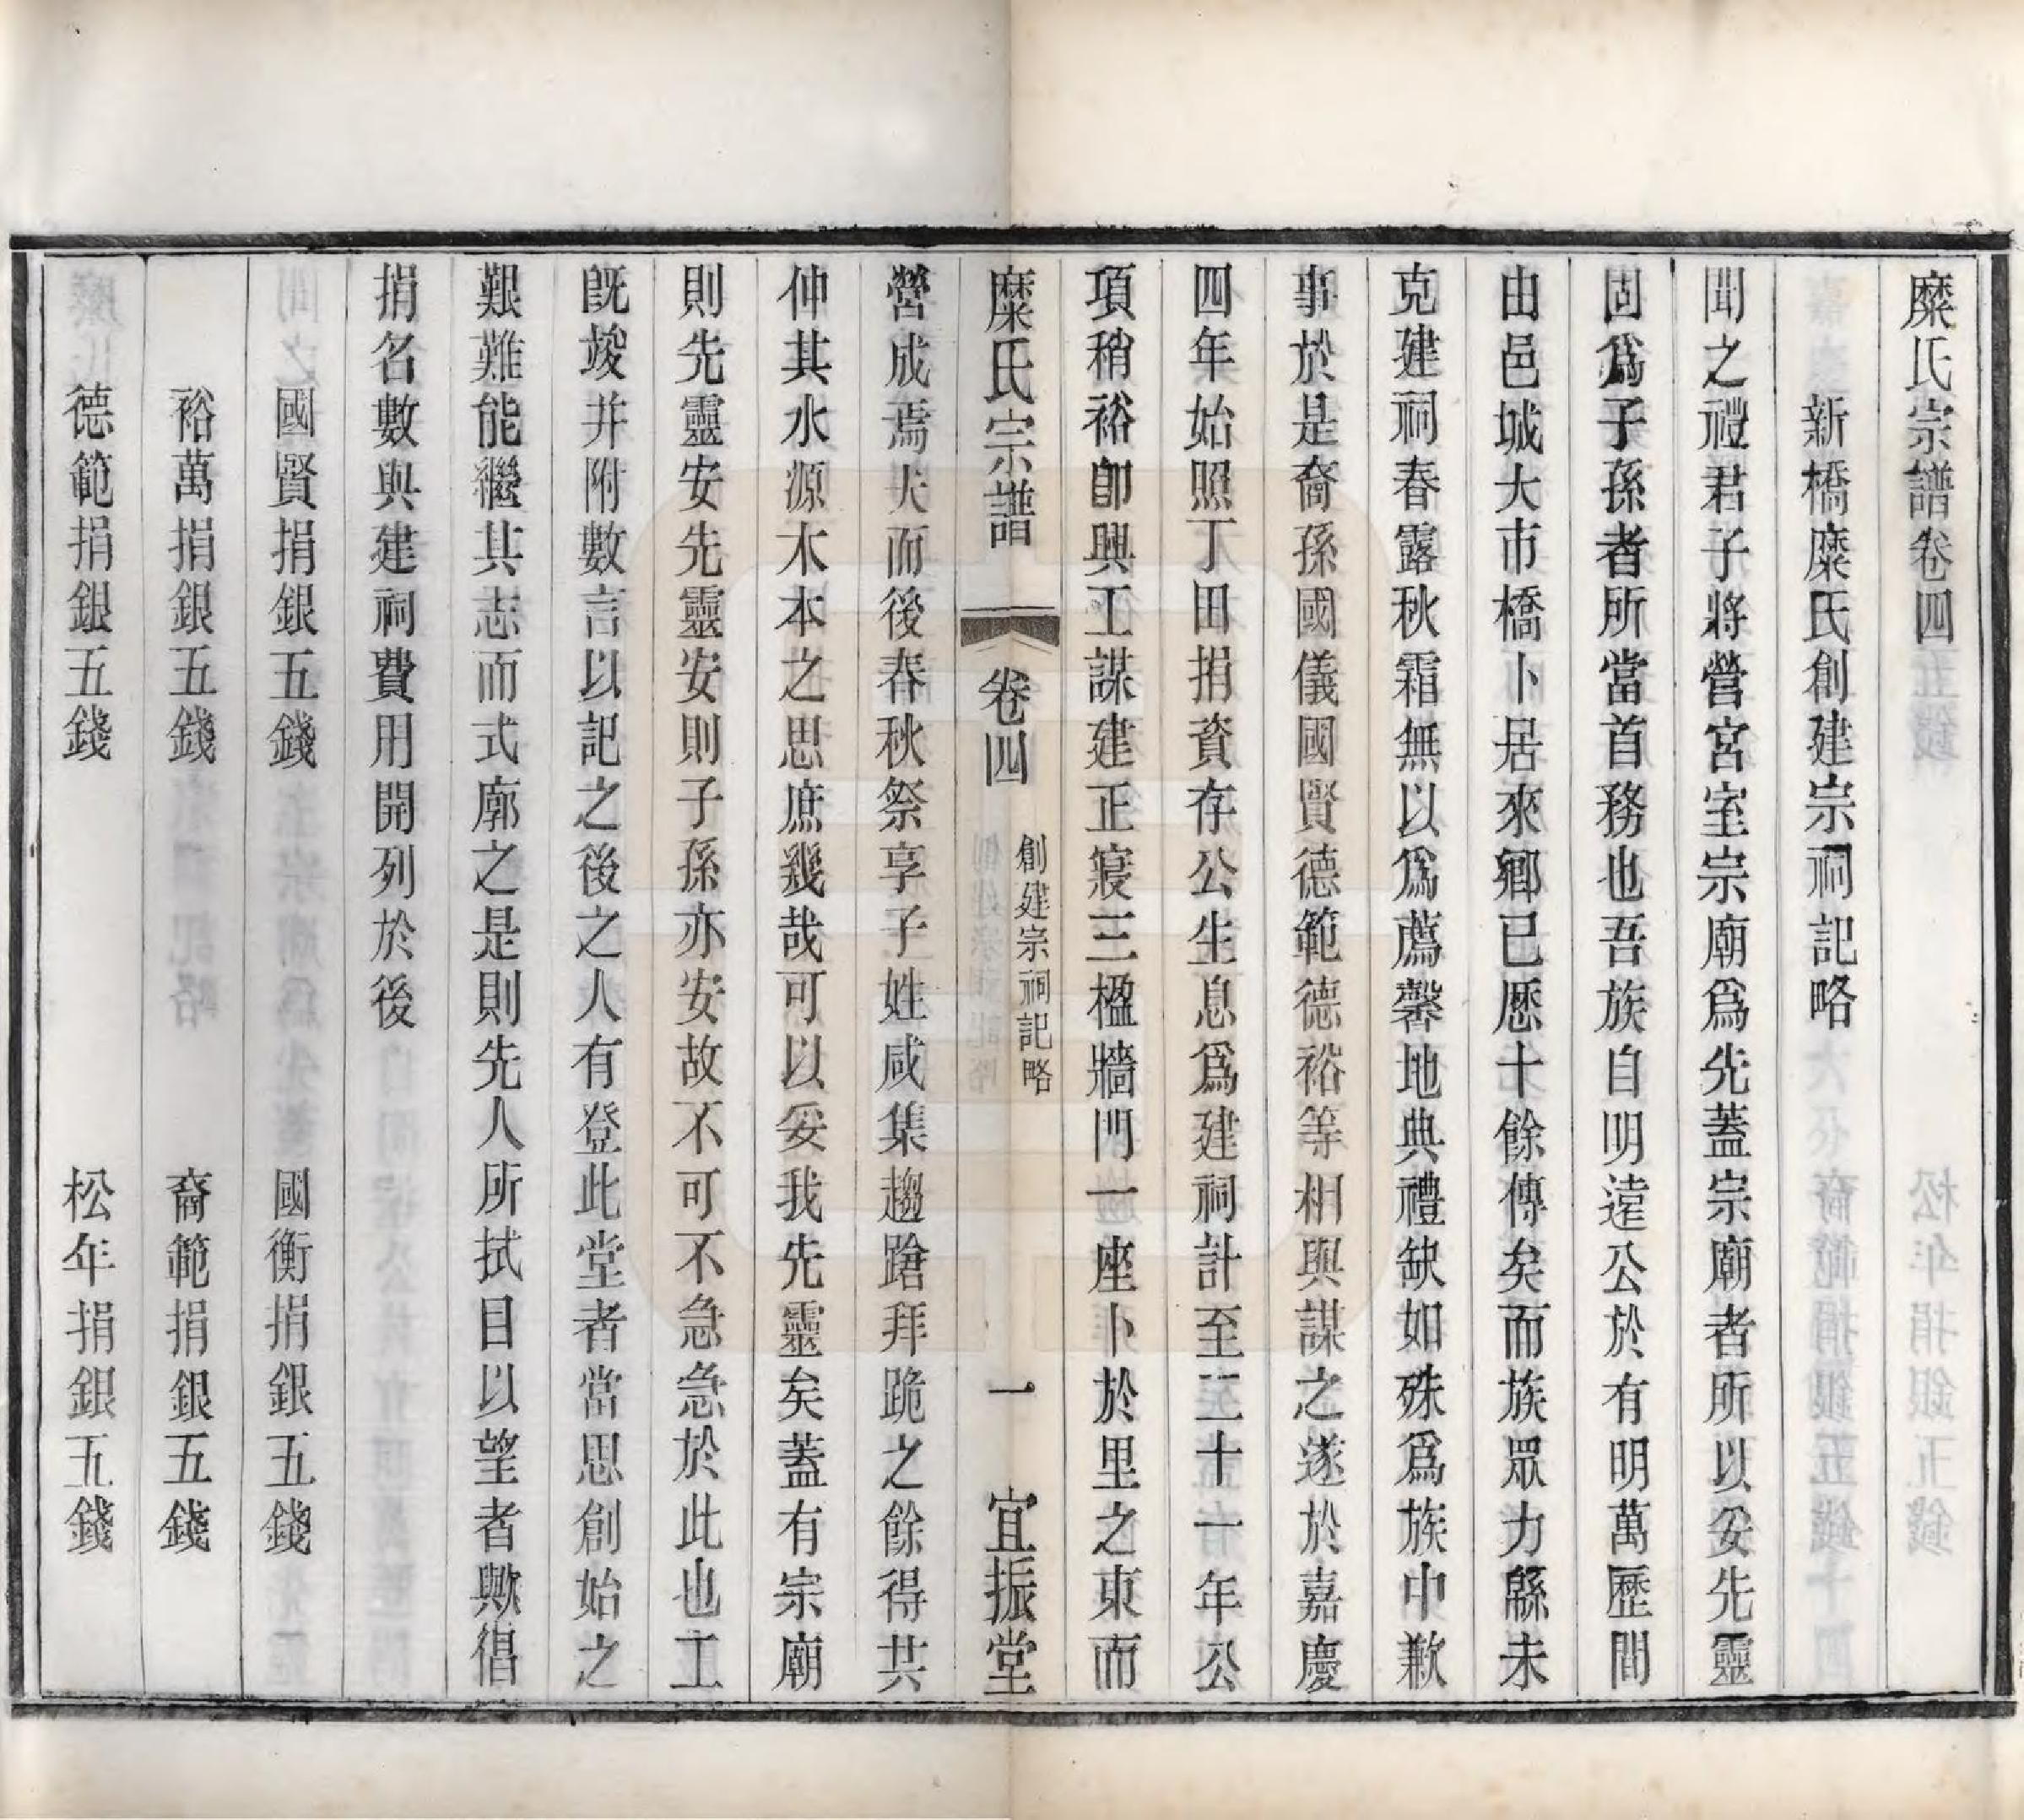 糜氏宗譜卷四
新橋糜氏創建宗祠記略
聞之禮君子將營宮室宗廟爲先蓋宗廟者所以妥先靈
固爲子孫者所當首務也吾族自明遠公於有明萬歷間
由邑城大市橋卜居來鄉已歷十餘傳矣而族眾力緜未
克建祠春露秋霜無以爲薦馨地典禮缺如殊爲族中歉
事於是裔孫國儀國賢德範德裕等相與謀之遂於嘉慶
四年始照丁田捐資存公生息爲建祠計至二十一年公
項稍裕卽興工謀建正寢三楹牆門一座卜於里之東而
糜氏宗譜
卷四
創建宗祠記略
一
宜振堂
營成焉夫而後春秋祭享子姓咸集趨蹌拜跪之餘得共
伸其水源木本之思庶幾哉可以妥我先靈矣蓋有宗廟
則先靈安先靈安則子孫亦安故不可不急急於此也工
旣竣并附數言以記之後之人有登此堂者當思創始之
艱難能繼其志而式廓之是則先人所拭目以望者歟倡
捐名數與建祠費用開列於後
國賢捐銀五錢 國衡捐銀五錢
裕萬捐銀五錢 裔範捐銀五錢
德範捐銀五錢 松年捐銀五錢